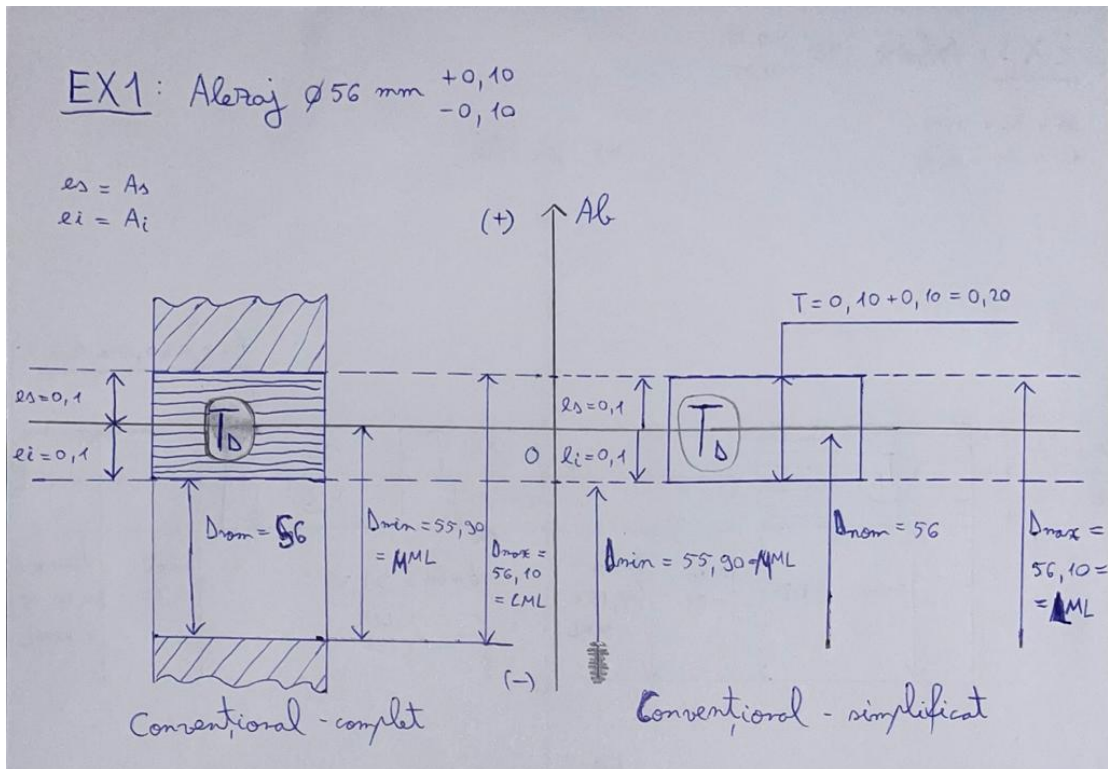 EX1: Alezaj ϕ56 mm +0,10
-0,10
es = As
ei = Ai
(+) Ab
T=0,10+0,10=0,20
es=0,1
ei=0,1
TD
Dnom = 56
Dmin=55,90
= MML
Dmax=
56,10
= LML
es=0,1
0 ei=0,1
TD
Dmin = 55,90=MML
Dnom = 56
Dmax=
56,10=
= LML
(-)
Convențional-complet
Convențional - simplificat